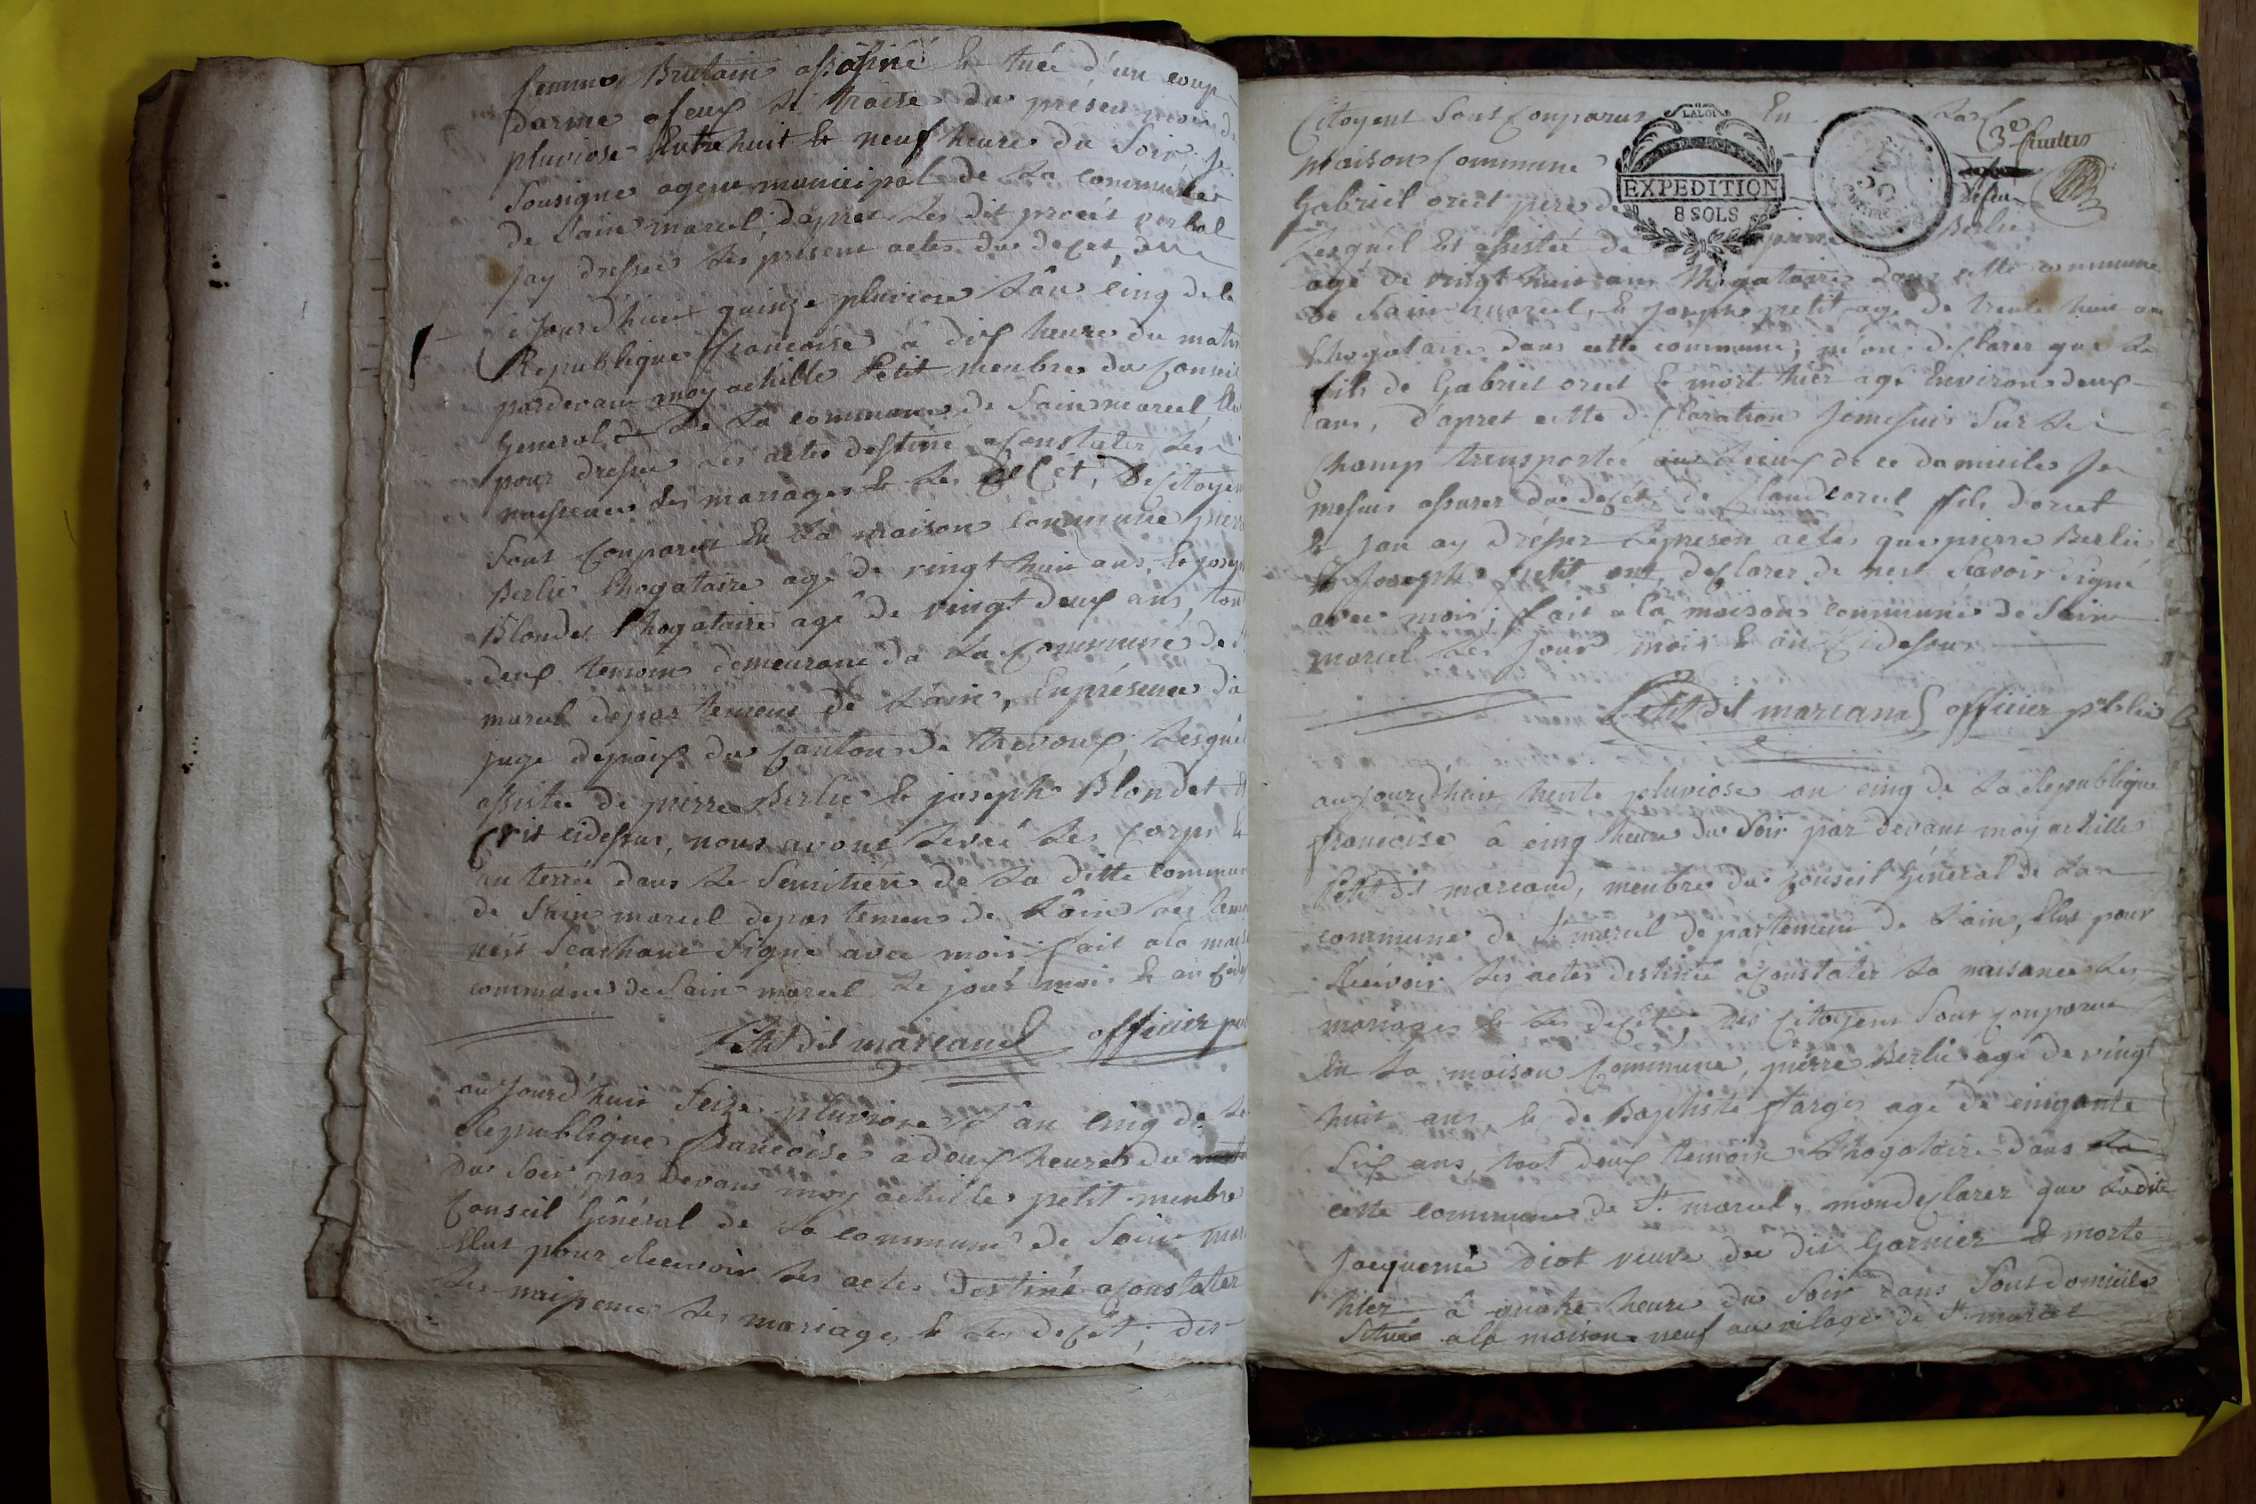 femme Brulain assasiné Et tuée d'un coup
darme afeux le traise du présen mois de
pluviose Entre huit Et neuf heure du Soir Je
Sousigne agent municipal de La commune
de Sain marcel, dapret Les dit procêt verbal
jay dressée Les présent actes du deçet, du
jourd'huit quinze pluviose L'an Cinq de la
Republique francoise à dix heure du matin
pardevant moy achille Petit menbre du Conseil
General de La commune de Sain marcel Elu
pour dresser Les actes destiné a Constater Les
naissances Les mariages Et Les deCêt, de Citoyen
Sont Conparut En La maison Commune pierre
Berlie Chogataire agé de vingt huit ans, Et joseph
Blondet Chogataire agé de vingt deux ans, tout
deux temoin demeurant dà La Commune de S
marcel departement de L'ain, En présence da
juge depaix du Canton de trevoux, Lesquel
assistée de pierre Berlie Et joseph Blondet
Crit cidessus, nous avont Levée Les Corps Et
an terrée dans Le Semitiere de La ditte commune
de Sain marcel departement de L'ain Les temoin
neit Seachant Signé avec moi fait a la maison
commune de Sain marcel Le jour mois Et an Cides
Petit dit marcand officier pu
au jourd'huit Seize pluviose L'an Cinq de La
Republique francoise a deux heures du
du Soir par devant moy achille petit menbre
Conseil Général de La commune de Sain mar
Elut pour Recevoir Les actes destiné a Constater
Les naissance Les mariages Et Les deçêt, des
Citoyent Sont Conparus En La
maison Commune
Gabriel oriet pere de
Lesquel Et assistée de pierre Berlie
agé de vingt huit ans Chogataire dans cette commune
de Sain marcel, Et joseph petit age de trente huit an
Chogataire dans cette commune, m'ont desclarer que Le
fils de Gabriel oriet Et mort hier agé Environ deux
ans, d'apret cette desclaration Jemesuis Sur Le
Champ transportée au Lieux de ce domicile Je
mesuis assurer du deçet de Claude oriet fils doriet
Et jan ay dresser Le presen actes que pierre Berlie
Et Joseph petit ont desclarer de neit Savoir Signé
avec moi, fait a La maison commune de Sain
marcel Les jour mois Et an Cidesus
Petit dit marcand officier publie
au jourd'huit trente pluviose an cinq de La Republique
francoise à cinq heure du Soir par devant moy achille
Petit dit marcand, menbre du Conseil Général de La
commune de St marcel departement de L'ain, Elut pour
Recevoir Les actes destinée a Constater La naisance Les
mariages Et Les deçêt, des Citoyent Sont Conparut
En La maison Commune, pierre Berlie agé de vingt
huit ans, Et de Baptiste farges agé de cinqante
Six ans, tout deux temoin Chogataire dans La
cette commune de St marcel, mondesclarer que Ladite
Jacqueme Diot veuve du dit Garnier Et morte
hier à quatre heure du Soir dans Sont domicile
Située a la maison neuf au vilage de St marcel
LA LOI
EXPEDITION
8 SOLS